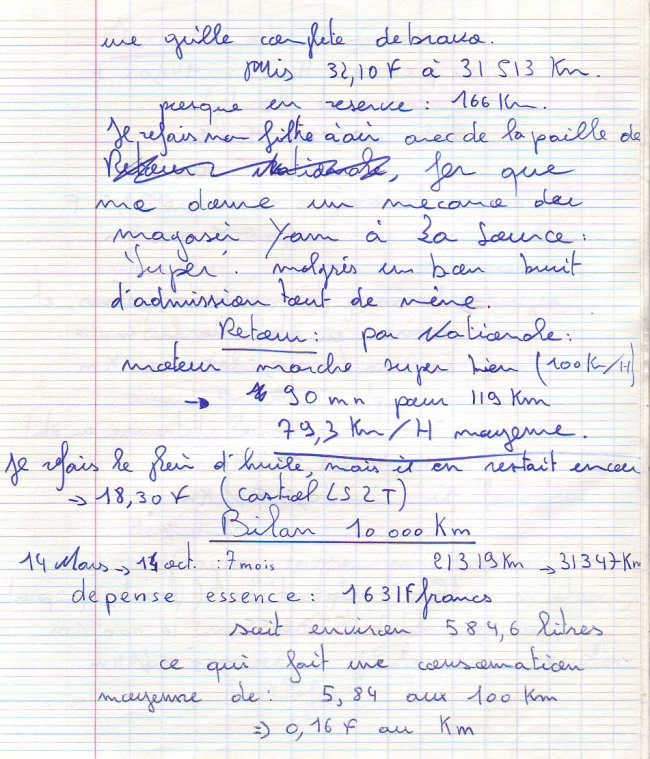 une grille complete de bravo.
puis 32,10 F à 31 513 Km.
presque en reserve : 166 Km.
Je refais mon filtre à air avec de la paille de
Retour Nationale, fer que
me donne un mecano du
magasin Yam à La Source :
"Super". malgrés un bon bruit
d'admission tout de même.
Retour : par Nationale :
moteur marche super bien (100 Km/H)
→ 90 mn pour 119 Km
79,3 Km/H moyenne.
Je refais le plein d'huile, mais il en restait encor
→ 18,30 F (Castrol LS 2T)
Bilan 10 000 Km
14 Mars → 14 oct. : 7 mois 21319 Km → 31347 Km
depense essence : 1631F francs
soit environ 584,6 litres
ce qui fait une consomation
moyenne de : 5,84 aux 100 Km
⇒ 0,16 F au Km